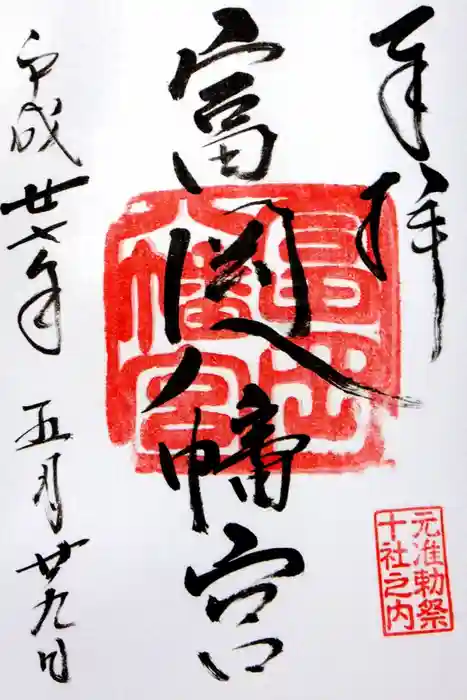 奉拝
富岡八幡宮
富岡
八幡宮
元准勅祭
十社之内
平成廿七年 五月廿九日